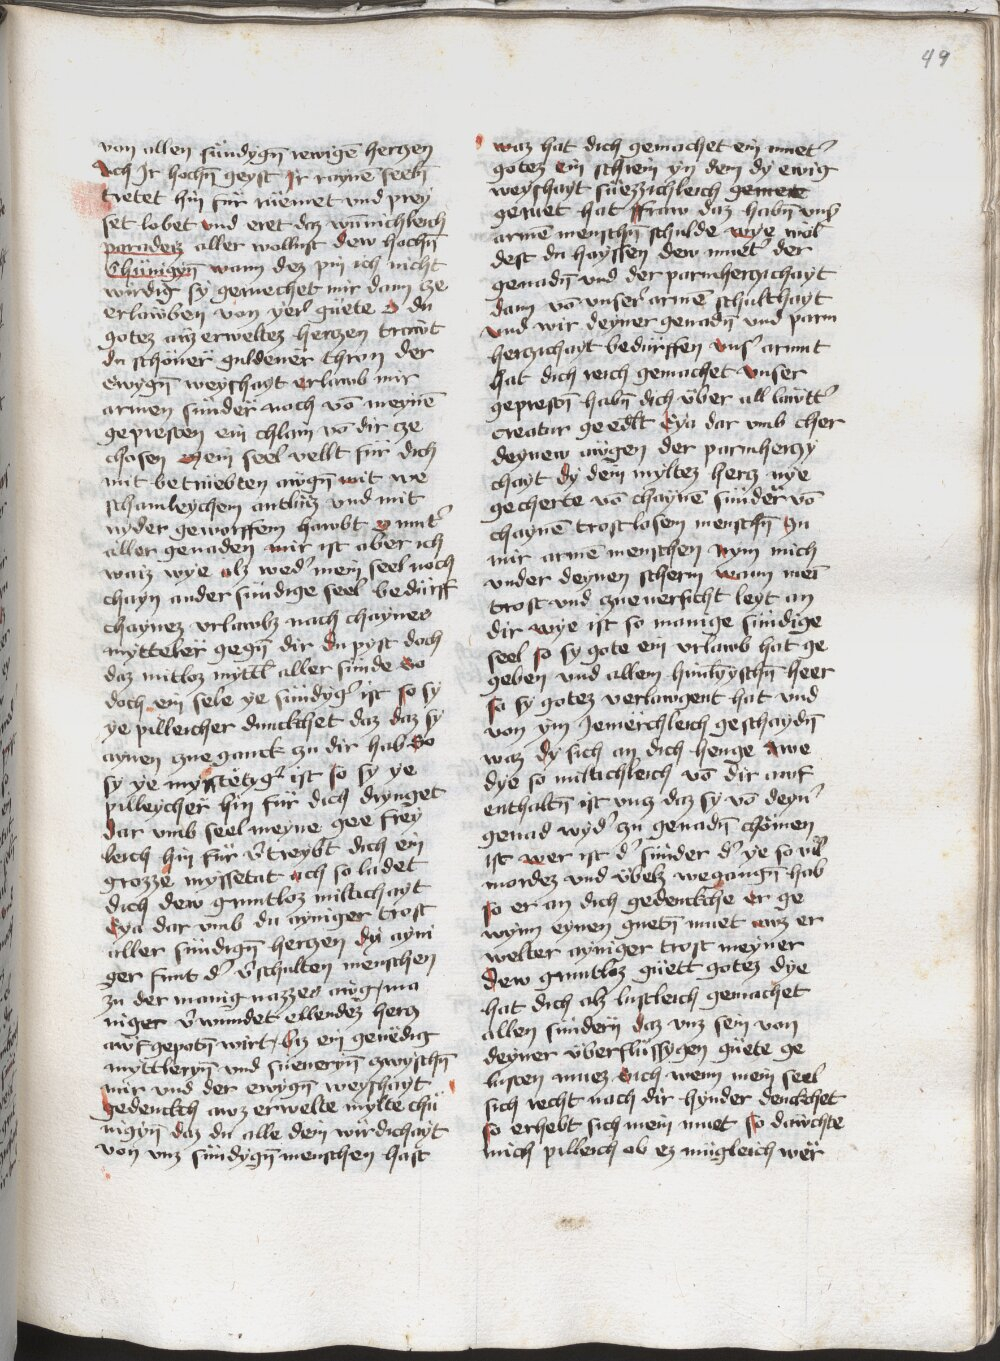 49
von allen sündygn̄ rewigē herczen
Ach Jr hochn̄ geyst Jr rayne seeln̄
tretet hin für rüemet vnd prey
set lobet vnd eret daz wu̅nichleich
paradeiz aller wollust dew hochn̄
Chünigyn̄ wann dez pin ich nicht
wirdig sy geruechet mir dann cze
erlawben von yer güete O du
gotez aus erweltez herczen trawt
du schöner guldener thron der
ewygn̄ weyshayt erlawb mir
armen sünder noch vō meynē
gepresten ein chlain vō dir cze
chosen Mein seel vellt für dich
mit betrüebten awgn̄ mit we
schamleychem antlücz vnd mit
nyder geworffem hawbt O muet᾽
aller genaden mir ist aber ich
waiz wye alz wed᾽ mein seel noch
chayn ander sündige seel bedürff
chaynez vrlawbz nach chaynes
myttelër gegn̄ dir Du pyst doch
daz mitloz myttl᾽ aller sünde So
doch ein sele ye sündyg᾽ ist so sy
ye pilleicher dunckchet daz daz sy
aynen czueganck zu dir hab So
sy ye mystëtyg᾽ ist so sy ye
pilleycher hin für dich dringet
Dar vmb seel meyne gee frey
leich hin für v᾽treybt dich ein
grozze myssetat Ach so ladet
dich dew gruntloz miltichayt
Eya dar vmb du ayniger trost
aller sündign̄ herczen Du ayni
ger funt d᾽ v᾽schulten menschen
zu der manig nazzes awg / ma
niger v᾽wundet ellendez hercz
awf gepotn̄ wirt / biz ein genëdig
myttleryn̄ vnd süeneryn̄ zwyschn̄
mir vnd der ewygn̄ weyshayt
gedenckch awz erwelte mylte chü
nigyn̄ daz du alle dein wirdichayt
von vnz sündygn̄ menschen hast
waz hat dich gemachet ein muet᾽
gotez ein schrein yn dem dy ewig
weyshayt süezzichleich
geruet hat ffraw daz habn̄ vnß
armē menschn̄ schulde wye wol
dest du hayssen dew muet᾽ der
genadn̄ vnd der parmherczichayt
dann vō vnser᾽ armē schulthayt
vnd wir deyner genadn̄ vnd parm
herczichayt bedürffen vns᾽ armut
hat dich reich gemachet vnser
geprestn̄ habn̄ dich über all lawtt᾽
creatur geedlt Eya dar vmb cher
deynew awgen der parmherczy
chayt dy dein myltez hercz nye
gecherte vō chaynē sünder vō
chaynē trostlosem menschn̄ zu
mir armē menschen Nym mich
vnder deynen scherm wann mei
trost vnd czueuersicht leyt an
dir wye ist so manige sündige
seel so sy gote ein vrlawb hat ge
geben vnd allem himlyschn̄ heer
so sy gotez verlawgent hat vnd
von ym Jemërchleich geschaydn̄
waz dy sich an dich henge Awe
dye so miltichleich vō dir awf
enthaltn̄ ist vncz daz sy vō deyn᾽
genad wyd᾽ zu genadn̄ chömen
ist wer ist d᾽ sünder d᾽ ye so vil
mordez vnd übelz wegangn̄ hab
so er an dich gedenckche er ge
wynn eynen guetn̄ muet awz er
welter ayniger trost meyner
Dew gruntloz güett gotez dye
hat dich alz lustleich gemachet
allen sündern daz vnz sein von
deyner überflüssygen güete ge
lusten muez Ach wenn mein seel
sich recht nach dir hynder denckchet
so erhebt sich mein muet so dawchte
mich pilleich ob ez mügleich wër